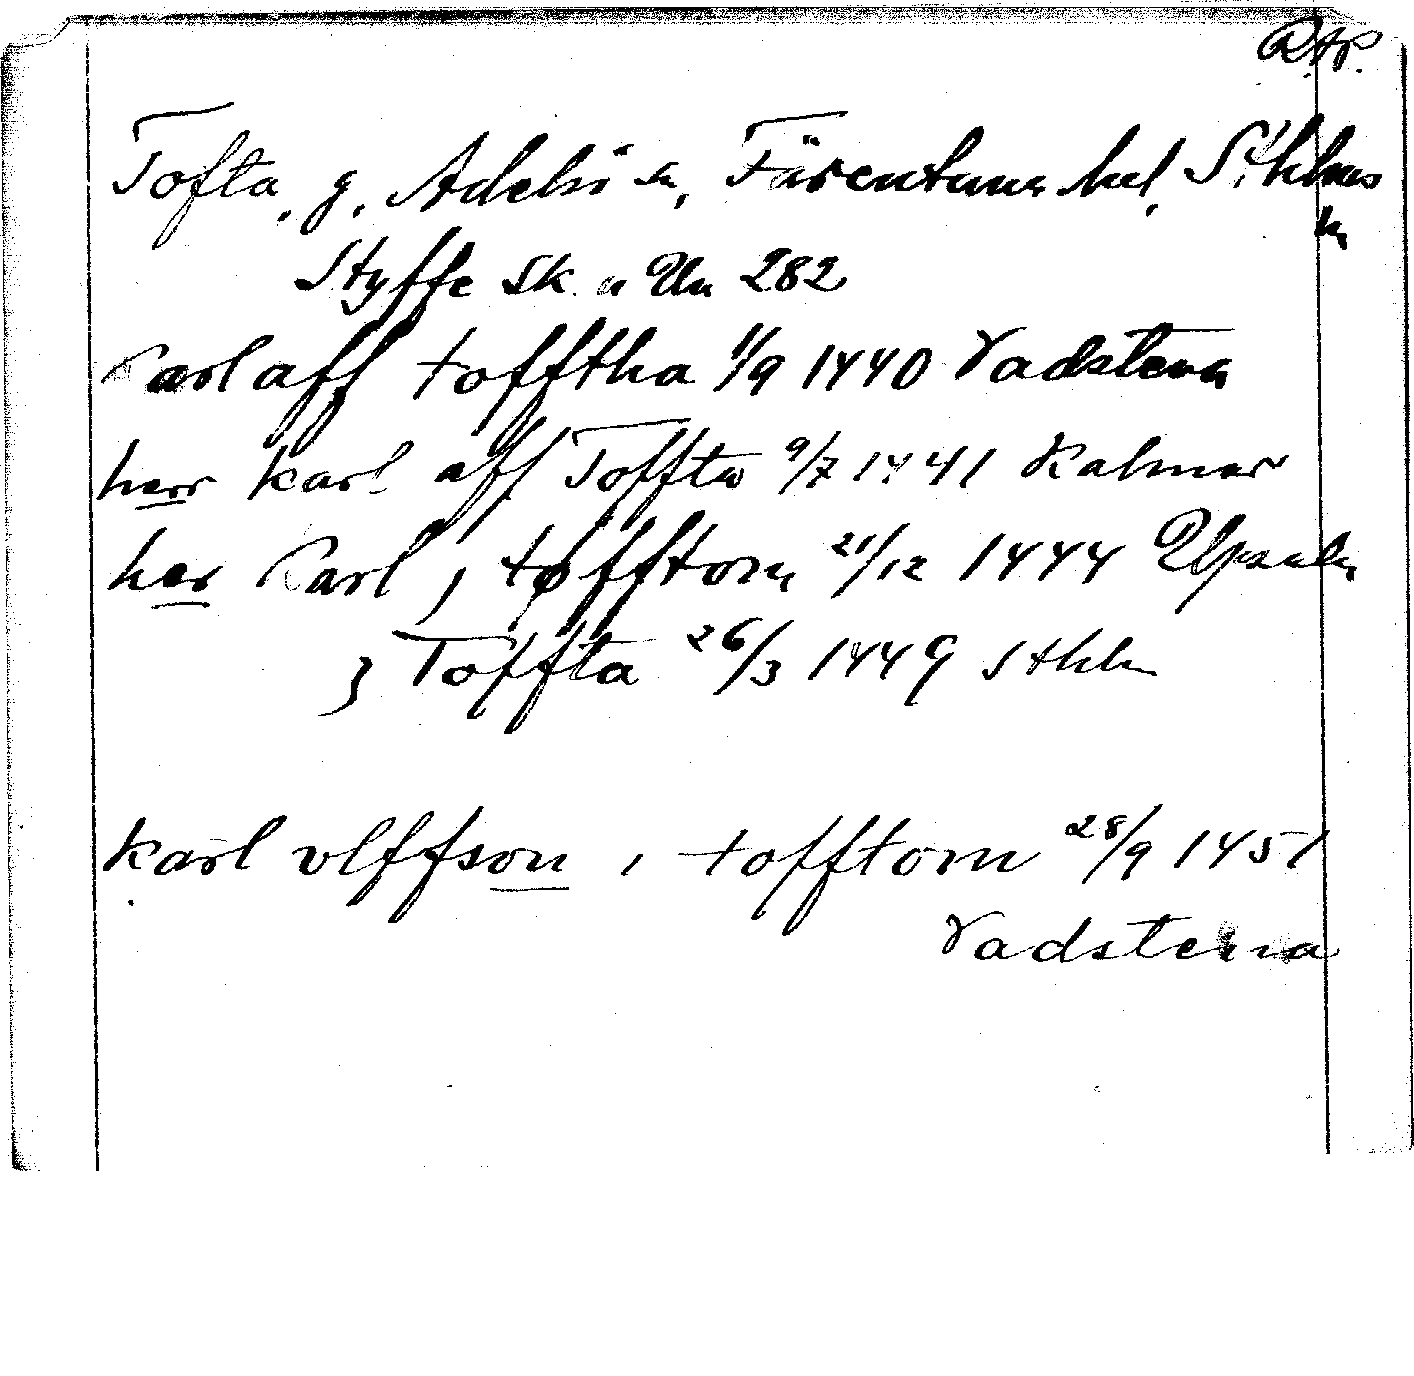 RAP.
Tofta, g. Adelsö sn, Färentuna hd, Sthlms
ln
Styffe Sk. u Un 282
Karl aff tofftha 11/9 1440 Vadstena
herr karl aff Toffta 9/7 1441 Kalmar
her Karl j tofftom 21/12 1444 Upsala
j Toffta 26/3 1449 Sthlm
karl vlffson i tofftom 28/9 1451
Vadstena